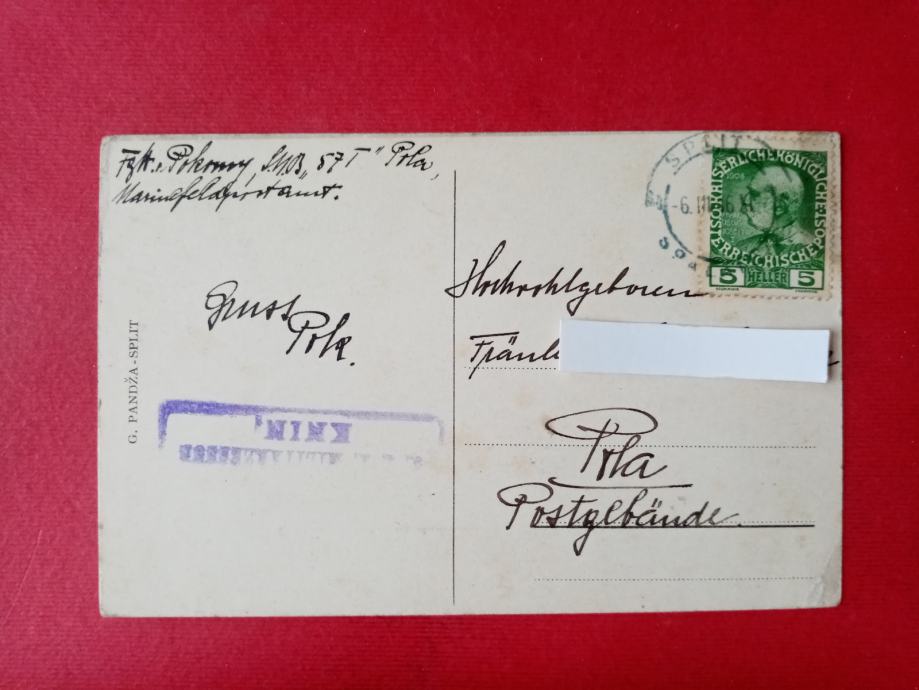 Pokorny S.M.B. "57 T" Pola,
Marinefeldpostamt.
Gruss
Pok.
G. PANDŽA - SPLIT
K.u.K. MILITÄRZENSUR
KNIN.
SPLIT
-6.III.16
SPAL
1908
KAISERLICHE KÖNIGLICHE ÖSTERREICHISCHE POST
5 HELLER 5
Hochwohlgeboren
Fräul
Pola
Postgebäude.